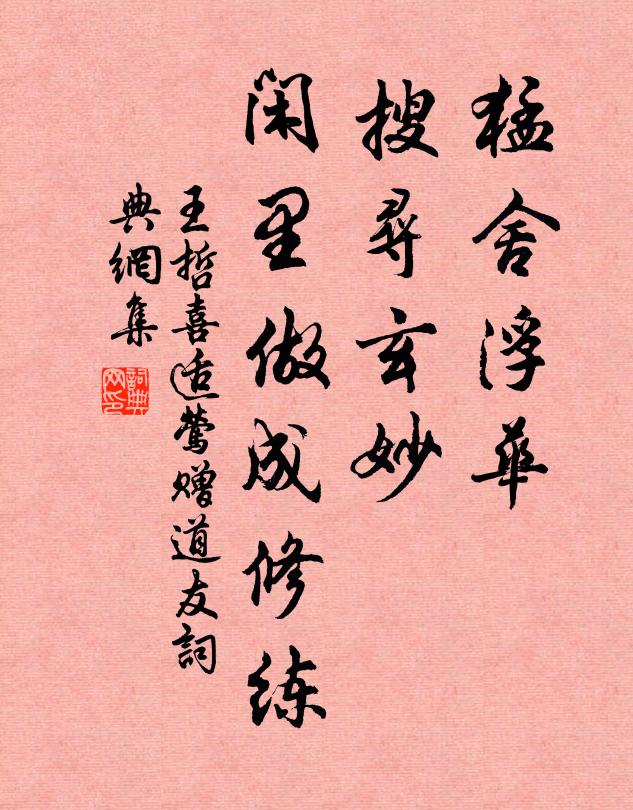 猛舍浮華
搜尋玄妙
闲里做成修练
王哲喜迁莺赠道友詞
典網集
詞典
网印